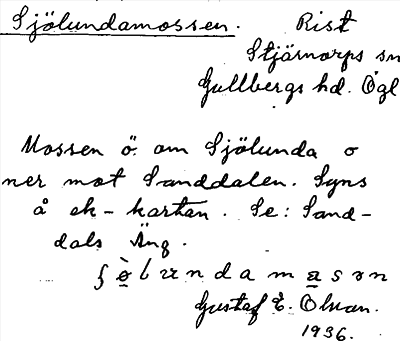 Sjölundamossen. Rist
Stjärnorps sn
Gullbergs hd. Ögl
Mossen ö. om Sjölunda o
ner mot Sanddalen. Syns
å ek-kartan. Se: Sand-
dals Äng.
Gustaf E. Olsson.
1936.